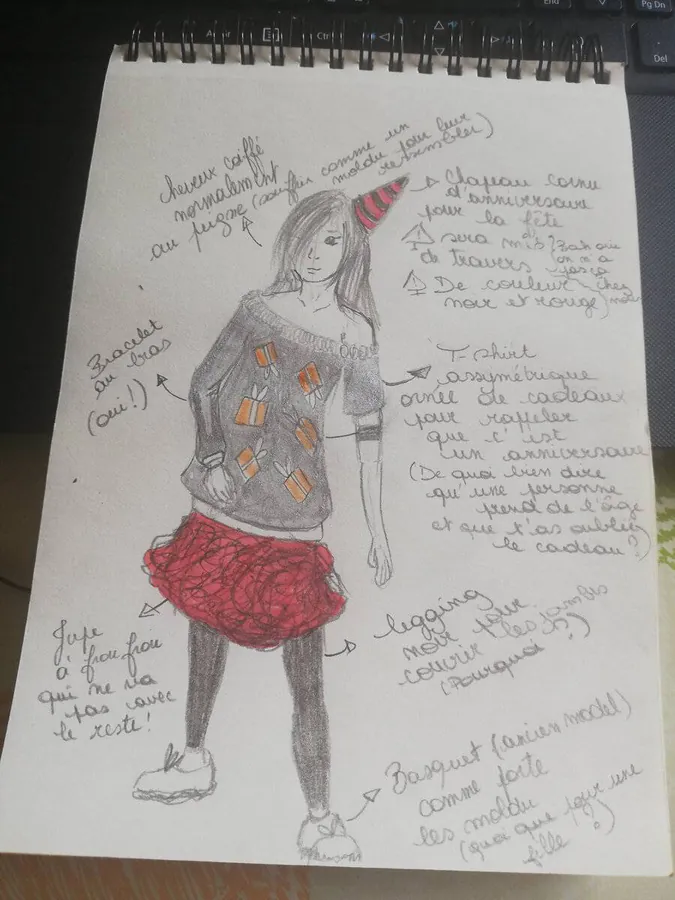 cheveux coiffé
normalement
au peigne (souffrir comme un
moldu pour leur
ressembler)
Chapeau cornu
d'anniversaire
pour la fête
sera mis
de travers
De couleur
noir et rouge
Bracelet
au bras
(oui!)
T-shirt
assymétrique
ornée de cadeaux
pour rappeler
que c'est
un anniversaire
(De quoi bien dire
qu'une personne
prend de l'âge
et que t'as oublié
le cadeau?)
Jupe
à froufrou
qui ne va
pas avec
le reste!
legging
noir pour
couvrir les jambes
(Pourquoi ?)
Basquet (ancien model)
comme porte
les moldu
(quoi que pour une
fille ?)
Ctr
End
Pg Dn
Del